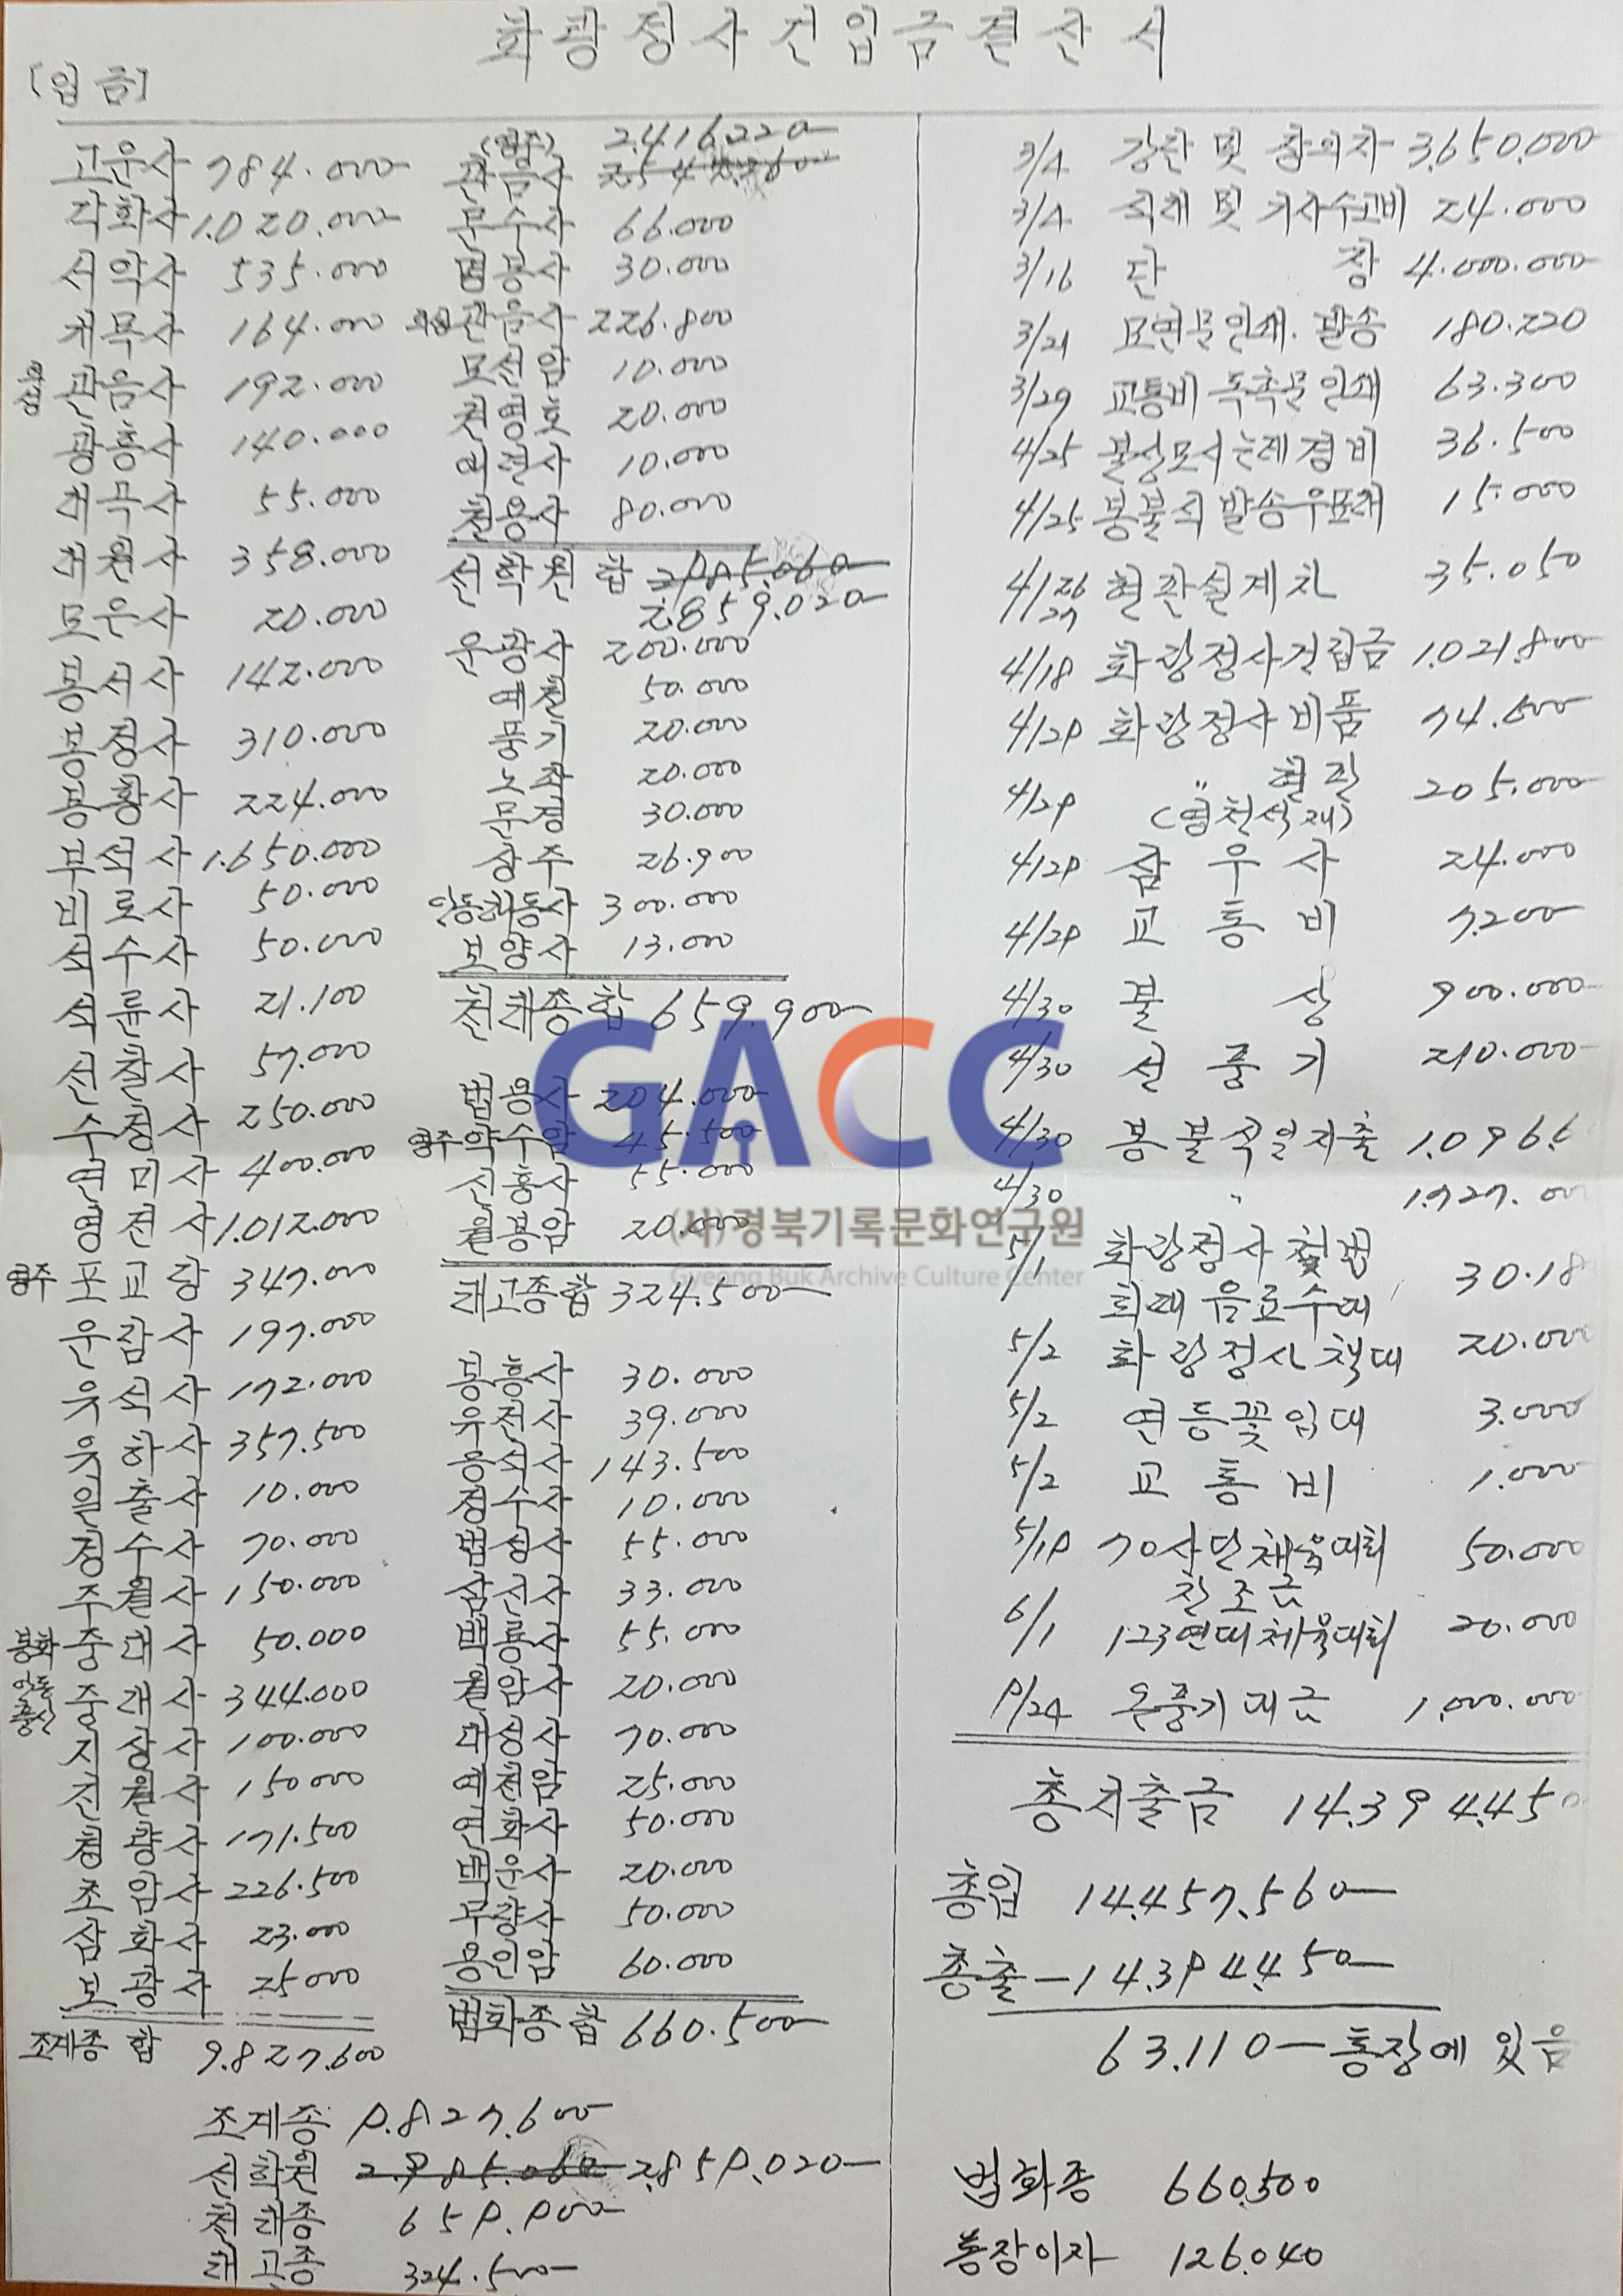 화광정사건입금결산서
[입금]
고운사 784.000
각화사 1.020.000
서악사 535.000
개목사 164.000
의성 관음사 192.000
광흥사 140.000
대곡사 55.000
대원사 358.000
모운사 20.000
봉서사 142.000
봉정사 310.000
봉황사 224.000
부석사 1.650.000
비로사 50.000
석수사 50.000
석륜사 21.100
선찰사 57.000
수정사 250.000
연미사 400.000
영전사 1.012.000
영주 포교당 347.000
운감사 197.000
유석사 172.000
유하사 357.500
일출사 10.000
정수사 70.000
주월사 150.000
봉화 중대사 50.000
안동 중대사 344.000
지상사 100.000
진월사 150000
청량사 171.500
초암사 226.500
삼화사 23.000
보광사 25000
조계종 합 9.827.600
(영주) 2.416.220
관음사
문수사 66.000
법봉사 30.000
관음사 226.800
모선암 10.000
권영호 20.000
애련사 10.000
천용사 80.000
선학원 합 2.985.060
2.859.020
운광사 200.000
예천 50.000
풍기 20.000
노좌 20.000
문경 30.000
상주 26.900
안동해동사 300.000
보양사 13.000
천태종합 659.900
법용사 204.000
영주 약수암 45.500
신흥사 55.000
월봉암 20.000
태고종합 324.500
봉흥사 30.000
유전사 39.000
용석사 143.500
정수사 10.000
법성사 55.000
삼선사 33.000
백룡사 55.000
월암사 20.000
대성사 70.000
예천암 25.000
연화사 50.000
백운사 20.000
무량사 50.000
용인암 60.000
법화종합 660.500
3/4 강찬 및 창의자 3.650.000
3/4 식대 및 기사수고비 24.000
3/16 단 장 4.000.000
3/21 모연문인쇄. 발송 180.220
3/29 교통비 독촉문인쇄 63.300
4/25 불상모시는데경비 36.500
4/25 봉불식발송우표대 15.000
4/26 27 현판설계차 35.050
4/18 화랑정사건립금 1.021.800
4/29 화랑정사비품 74.600
4/29 〃 현판 205.000
(영천석재)
4/29 삼우사 24.000
4/29 교통비 7.200
4/30 불 상 900.000
4/30 선풍기 210.000
4/30 봉불식일지출 1.096.6
4/30 〃 1.727.00
5/1 화랑정사 첫법 30.18
회때 음료수대
5/2 화랑정사책대 20.000
5/2 연등꽃잎대 3.000
5/2 교통비 1.000
5/19 70사단체육대회 50.000
찬조금
6/1 123연대체육대회 20.000
9/24 온풍기대금 1.000.000
총지출금 14.394.450
총입 14.457.560
총출 -14.394.450
63.110-통장에 있음
조계종 9.827.600
선학원 2.985.060 2.859.020
천태종 659.900
태고종 324.500
법화종 660.500
통장이자 126.040
GACC
(사)경북기록문화연구원
Gyeong Buk Archive Culture Center